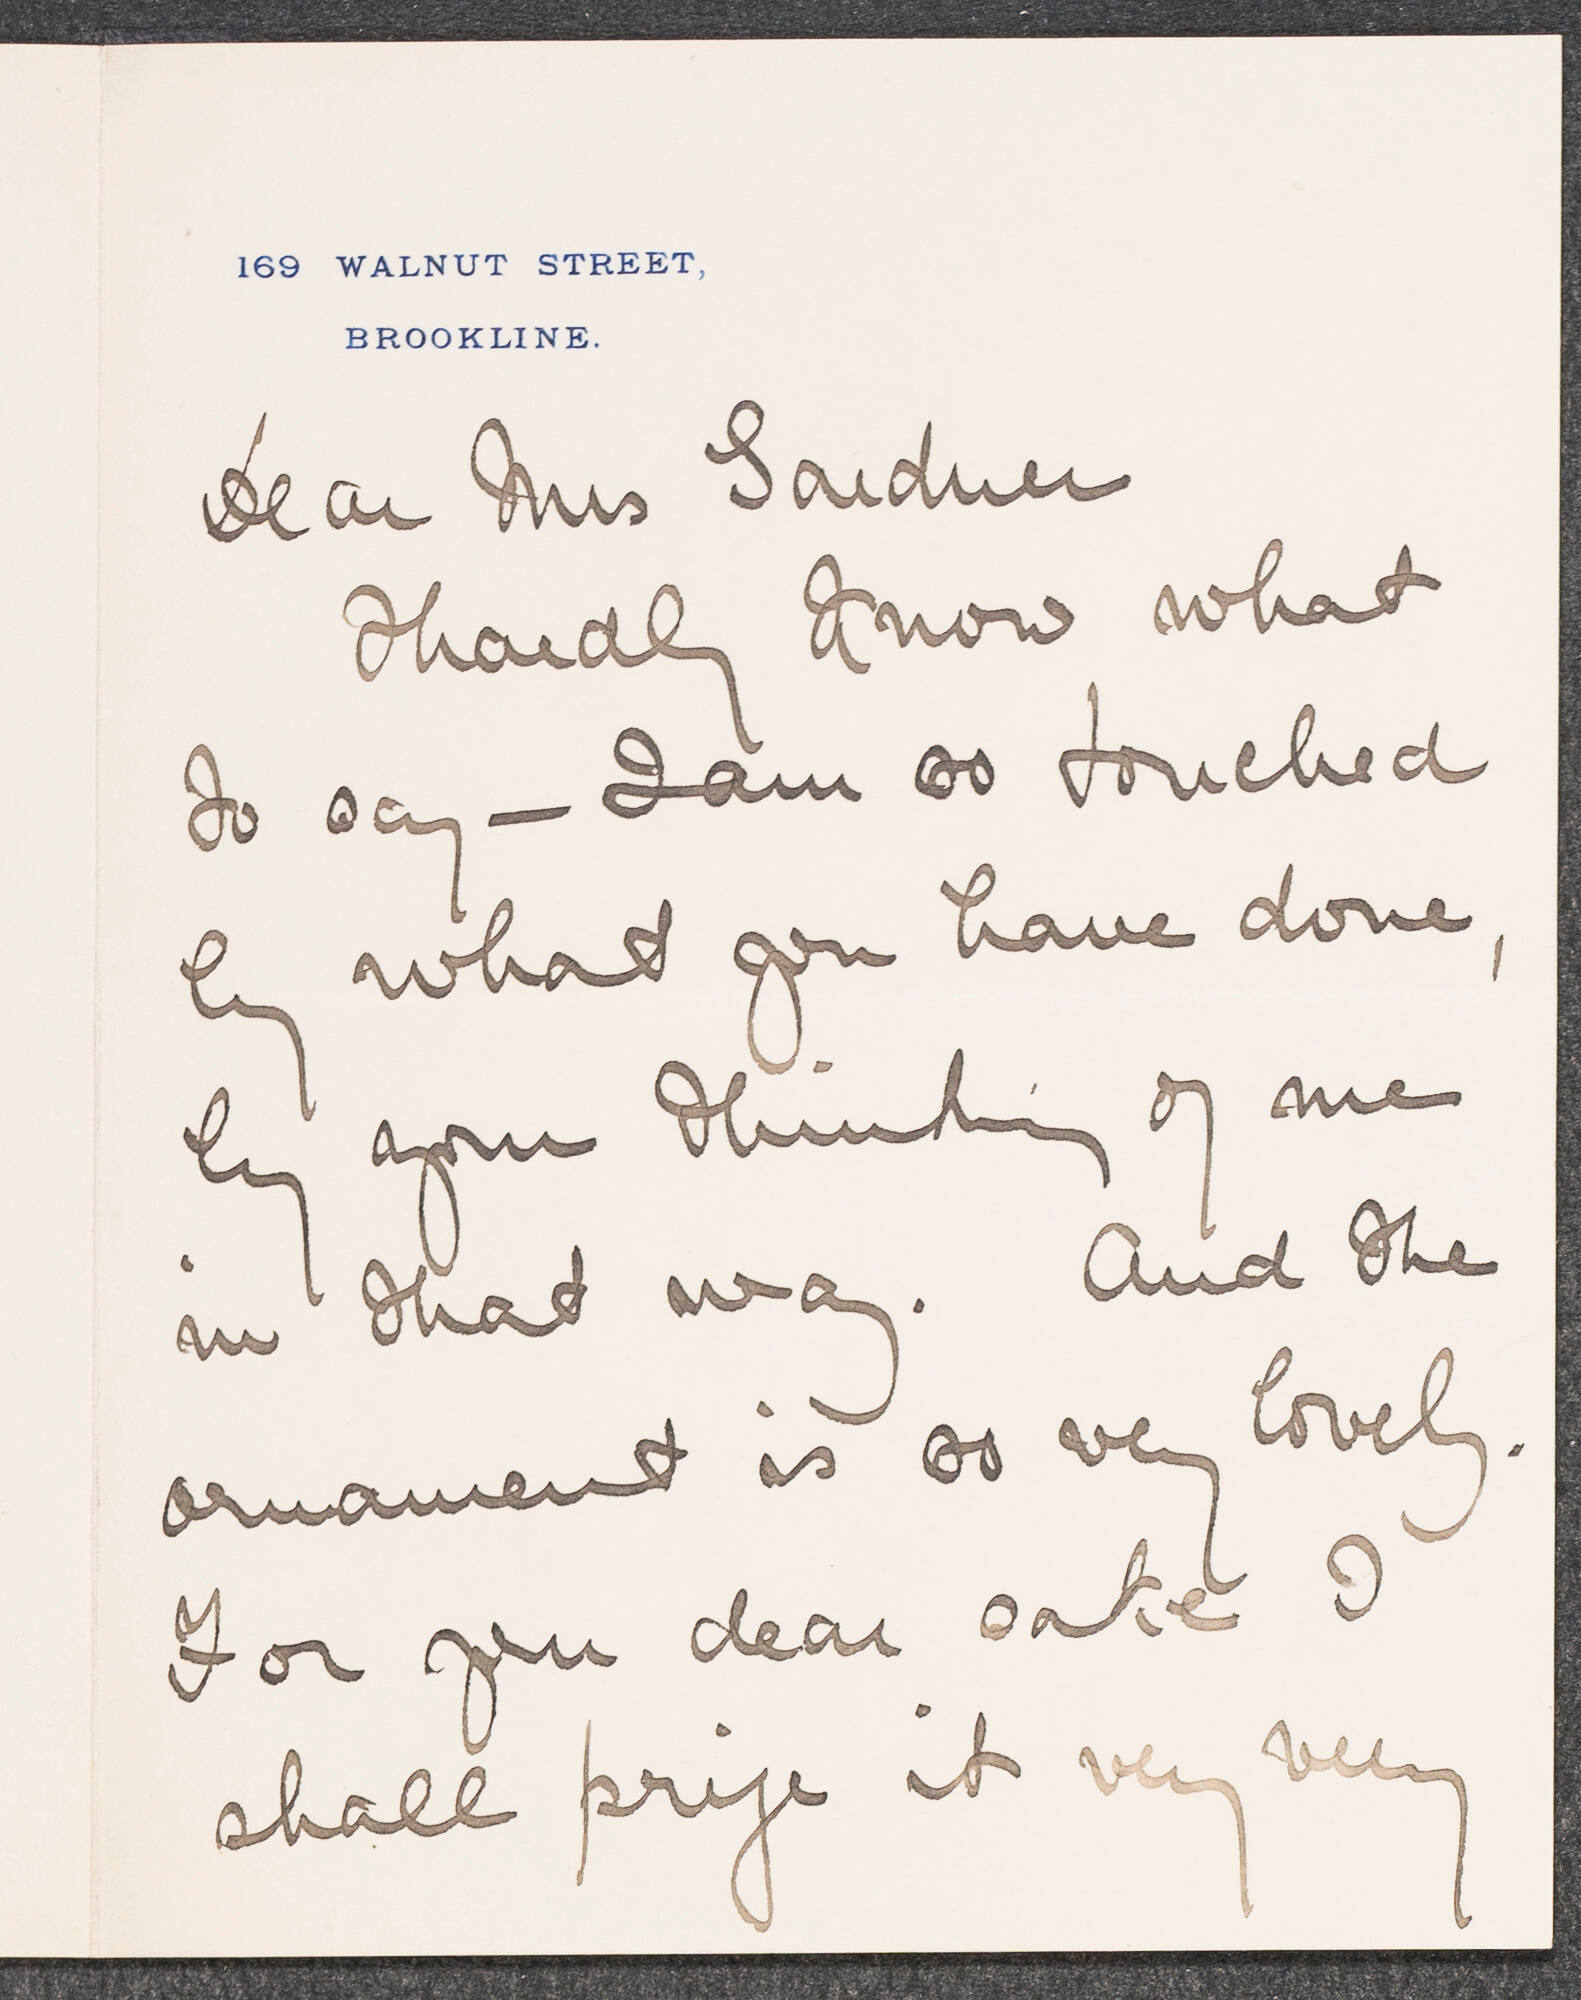 169 WALNUT STREET,
BROOKLINE.
Dear Mrs Gardner
I hardly know what
to say — I am so touched
by what you have done,
by your thinking of me
in that way. And the
ornament is so very lovely.
For your dear sake I
shall prize it very very